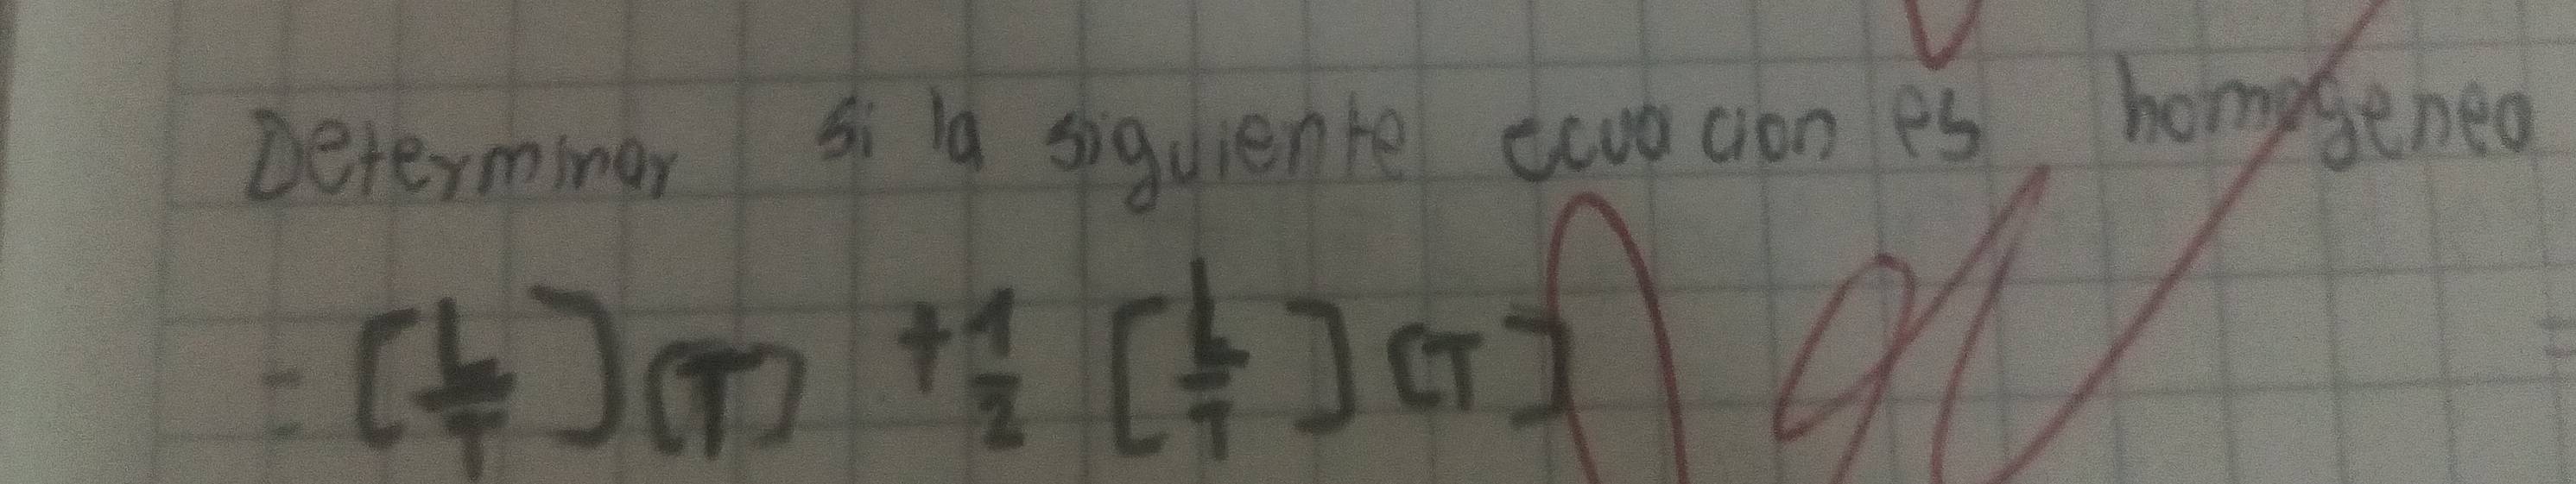 Determinar si la siguiente ecuacion es homogenea
= [L/T] [T] + 1/2 [L/T] [T]